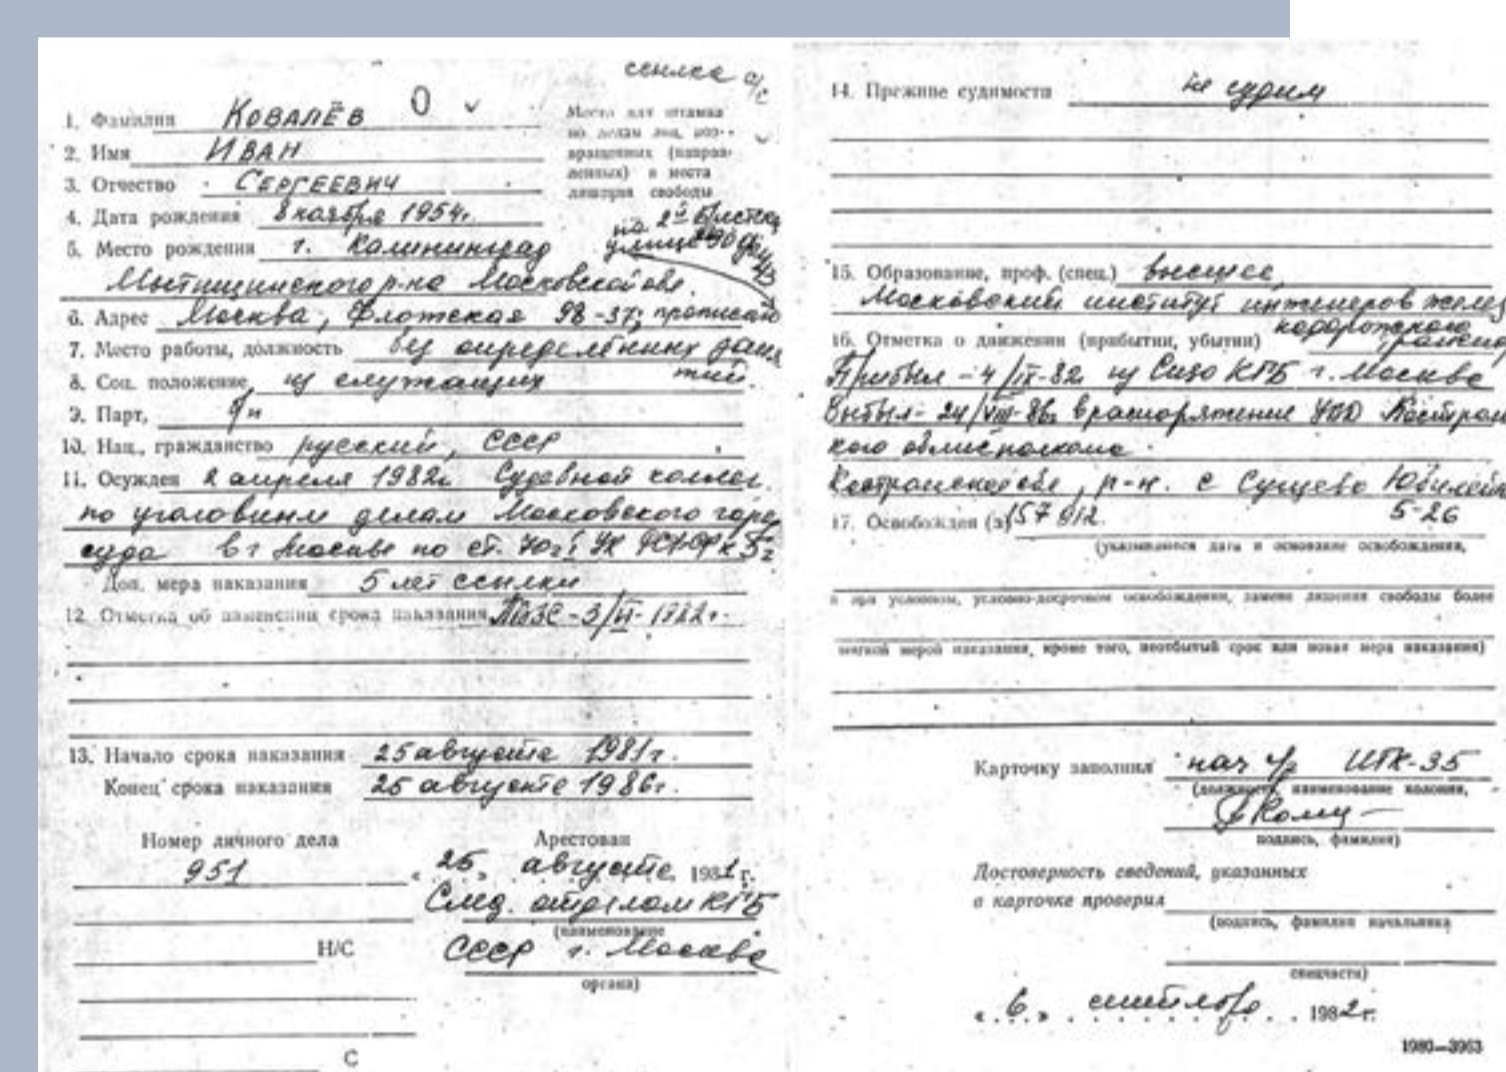 ссылка о/с
1. Фамилия КОВАЛЁВ О
2. Имя ИВАН
3. Отчество СЕРГЕЕВИЧ
Место для штампа
по делам лиц, воз-
вращенных (направ-
ленных) в места
лишения свободы
4. Дата рождения 8 ноября 1954г.
5. Место рождения г. Калининград
Мытищинского р-на Московской обл.
6. Адрес Москва, Флотская 98-37; прописан
7. Место работы, должность без определённых заня
тий.
8. Соц. положение из служащих
9. Парт. б/п
10. Нац., гражданство русский, СССР
11. Осужден 2 апреля 1982г. Судебной коллег.
по уголовным делам Московского горо
суда в г. Москве по ст. 70 ч. 1 УК РСФСР к 5 г
Доп. мера наказания 5 лет ссылки
12. Отметка об изменении срока наказания
13. Начало срока наказания 25 августа 1981г.
Конец срока наказания 25 августа 1986г.
Номер личного дела
951
Н/С
С
Арестован
« 25 » августа 1981 г.
След. отделом КГБ
(наименование
СССР г. Москва
органа)
14. Прежние судимости не судим
15. Образование, проф. (спец.) высшее,
Московский институт инженеров желез
нодорожного
16. Отметка о движении (прибытии, убытии)
Прибыл - 4/IX-82 из Сизо КГБ г. Москва
Выбыл - 24/VIII-86г. в распоряжение УВД Костром
кого облисполкома.
Костромской обл, р-н. с Сущево Юбилейн
5-26
17. Освобожден (а)
(указывается дата и основание освобождения,
и при условном, условно-досрочном освобождении, замене лишения свободы более
мягкой мерой наказания, кроме того, неотбытый срок или новая мера наказания)
Карточку заполнил нач ч/ ИТК-35
(должность, наименование колонии,
подпись, фамилия)
Достоверность сведений, указанных
в карточке проверил
(подпись, фамилия начальника
спецчасти)
« 6 » сентября 1982 г.
1980—3963